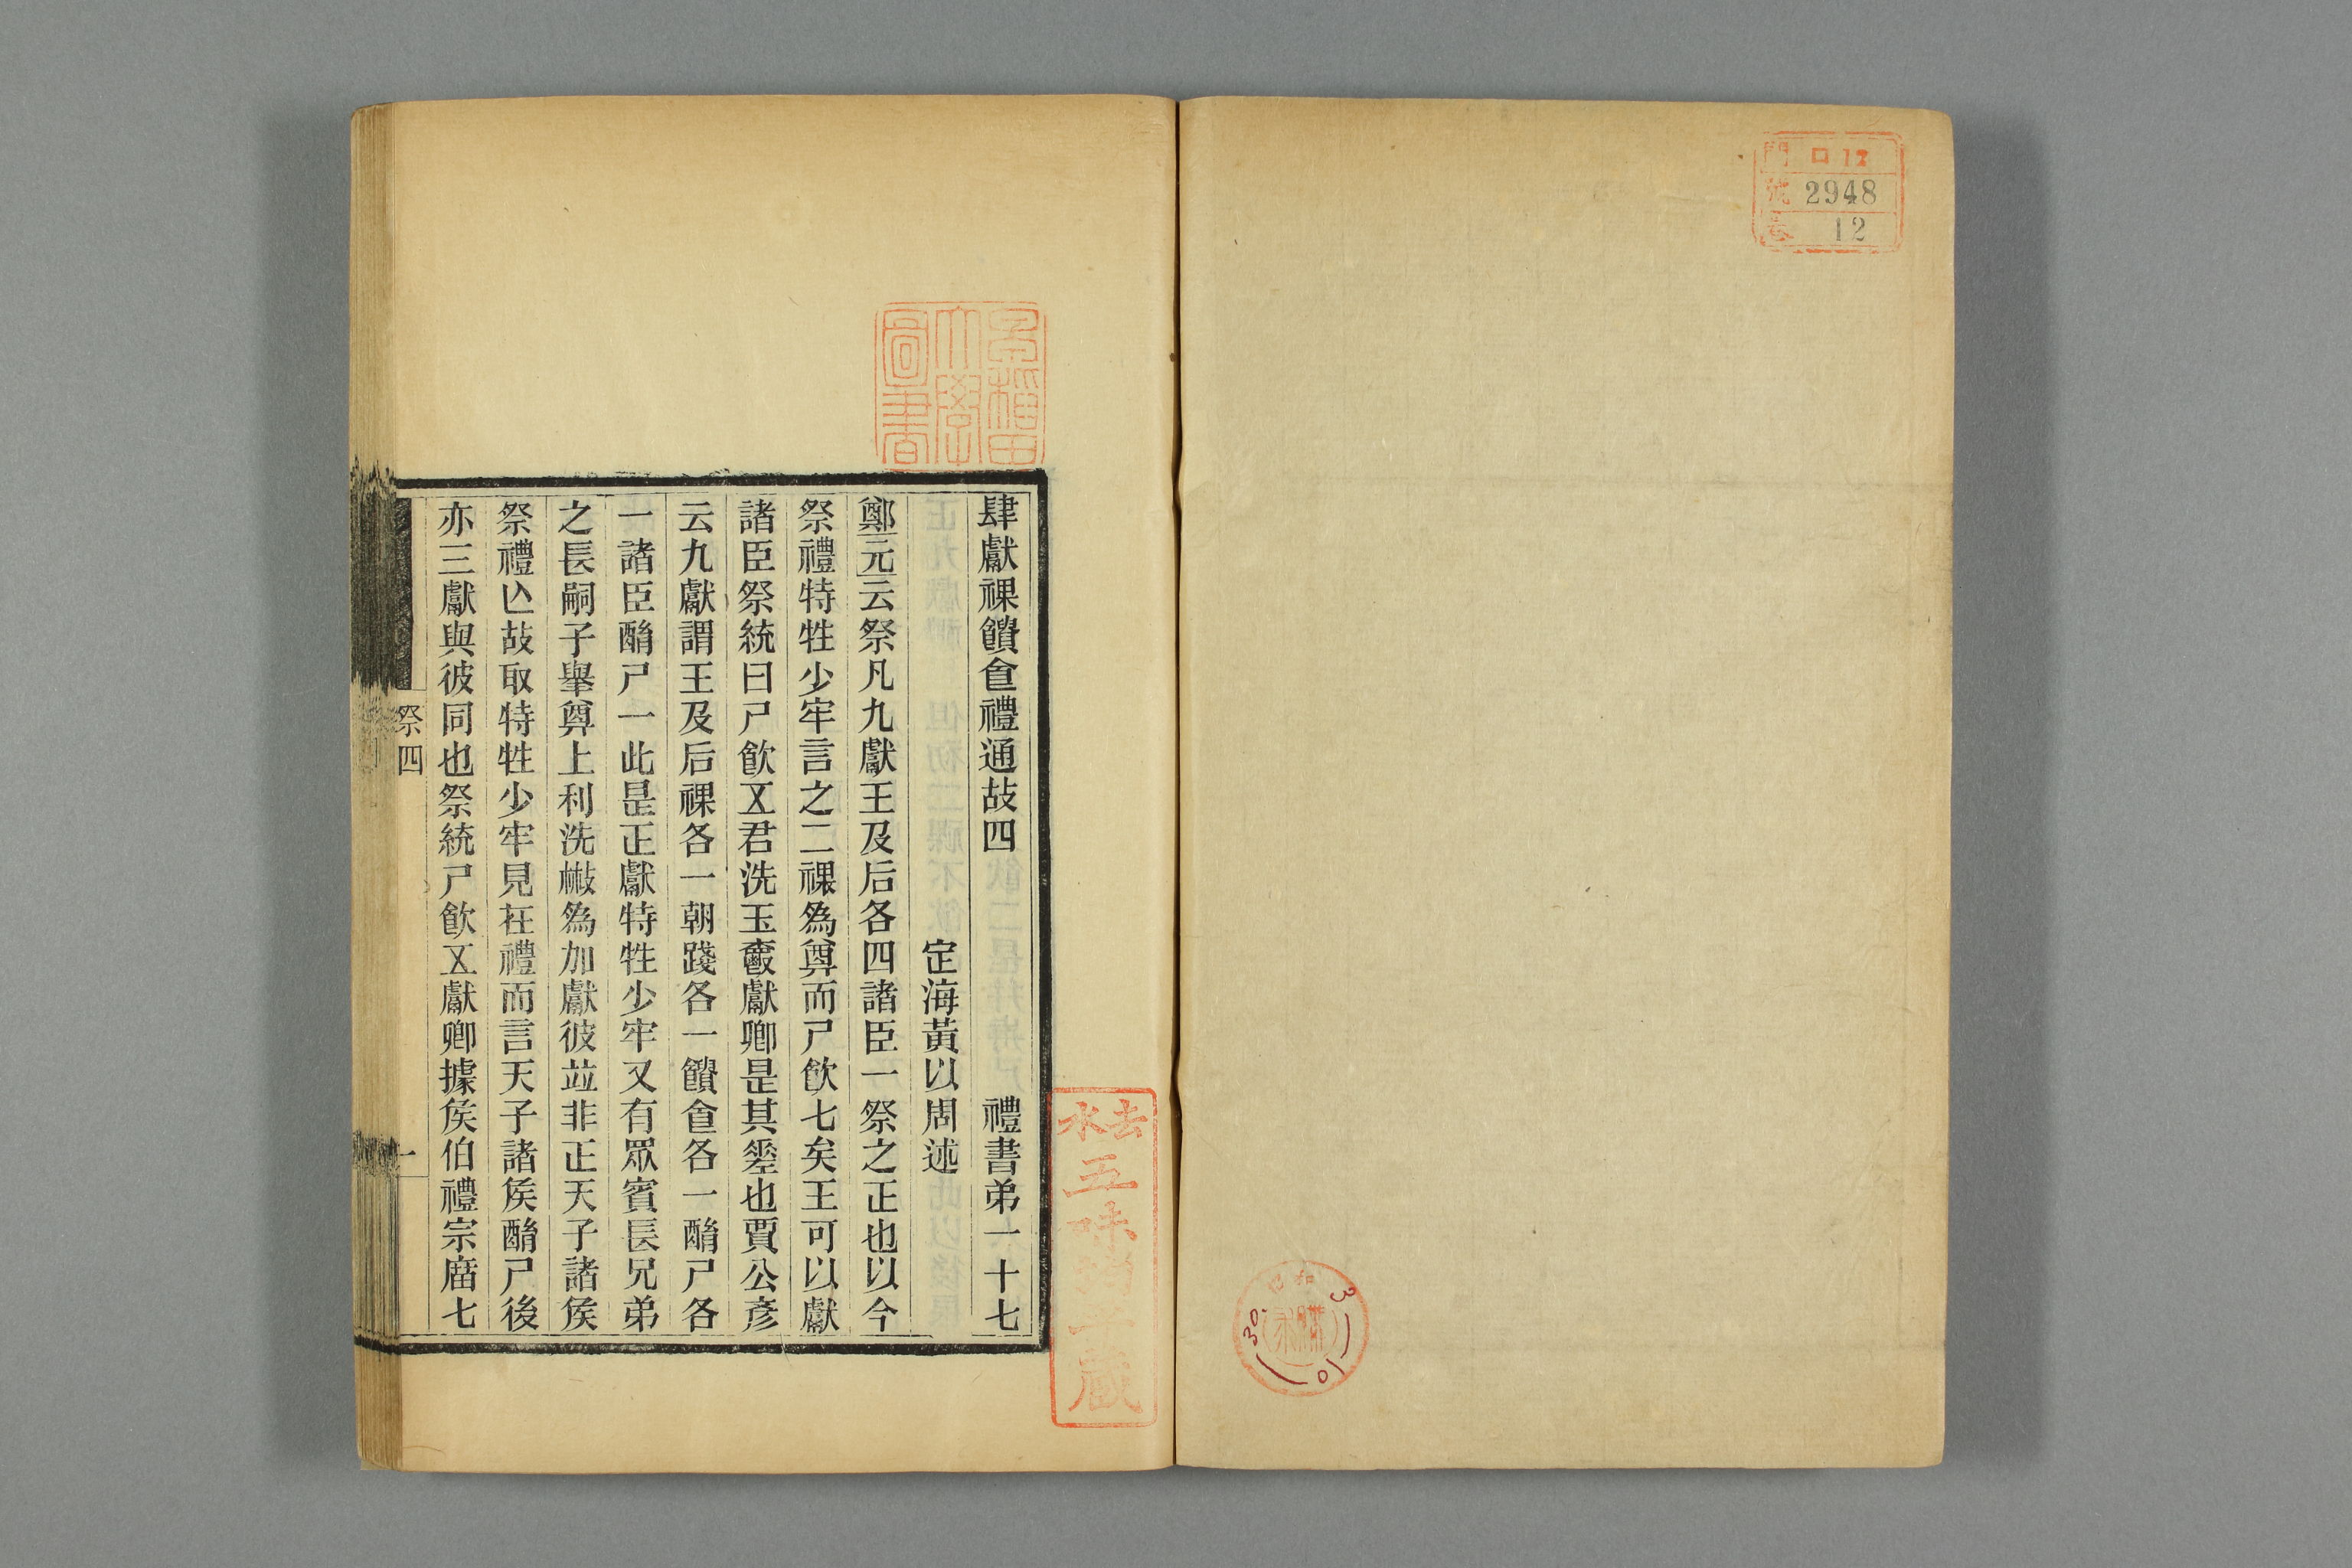 門 ロ12
號 2948
卷 12
昭和
30.
10
3
早稲田
大學
圖書
肆獻祼饋食禮通故四 禮書弟一十七
定海黃以周述
鄭元云祭凡九獻王及后各四諸臣一祭之正也以今
祭禮特牲少牢言之二祼爲尊而尸飲七矣王可以獻
諸臣祭統曰尸飲五君洗玉爵獻卿是其差也賈公彥
云九獻謂王及后祼各一朝踐各一饋食各一酳尸各
一諸臣酳尸一此是正獻特牲少牢又有眾賓長兄弟
之長嗣子舉尊上利洗散爲加獻彼竝非正天子諸侯
祭禮亾故取特牲少牢見在禮而言天子諸侯酳尸後
亦三獻與彼同也祭統尸飲五獻卿據侯伯禮宗廟七
祭四
一
去水
五味
藏